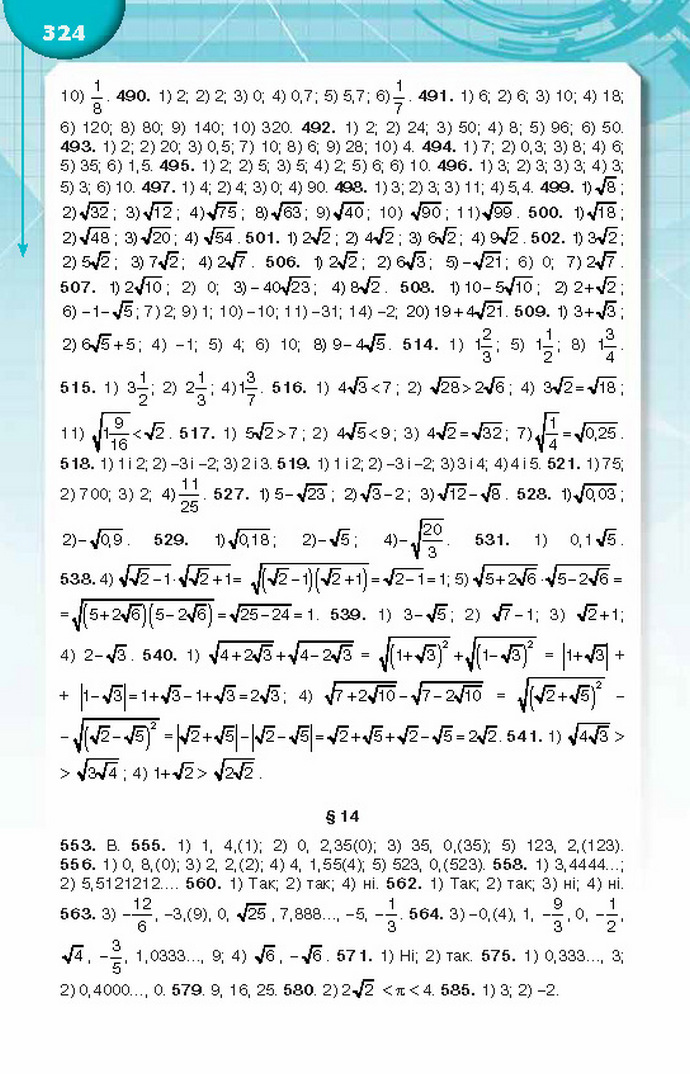 324
10) 1/8. 490. 1) 2; 2) 2; 3) 0; 4) 0,7; 5) 5,7; 6) 1/7. 491. 1) 6; 2) 6; 3) 10; 4) 18;
6) 120; 8) 80; 9) 140; 10) 320. 492. 1) 2; 2) 24; 3) 50; 4) 8; 5) 96; 6) 50.
493. 1) 2; 2) 20; 3) 0,5; 7) 10; 8) 6; 9) 28; 10) 4. 494. 1) 7; 2) 0,3; 3) 8; 4) 6;
5) 35; 6) 1,5. 495. 1) 2; 2) 5; 3) 5; 4) 2; 5) 6; 6) 10. 496. 1) 3; 2) 3; 3) 3; 4) 3;
5) 3; 6) 10. 497. 1) 4; 2) 4; 3) 0; 4) 90. 498. 1) 3; 2) 3; 3) 11; 4) 5,4. 499. 1) √8;
2) √32; 3) √12; 4) √75; 8) √63; 9) √40; 10) √90; 11) √99. 500. 1) √18;
2) √48; 3) √20; 4) √54. 501. 1) 2√2; 2) 4√2; 3) 6√2; 4) 9√2. 502. 1) 3√2;
2) 5√2; 3) 7√2; 4) 2√7. 506. 1) 2√2; 2) 6√3; 5) −√21; 6) 0; 7) 2√7.
507. 1) 2√10; 2) 0; 3) −40√23; 4) 8√2. 508. 1) 10−5√10; 2) 2+√2;
6) −1−√5; 7) 2; 9) 1; 10) −10; 11) −31; 14) −2; 20) 19+4√21. 509. 1) 3+√3;
2) 6√5+5; 4) −1; 5) 4; 6) 10; 8) 9−4√5. 514. 1) 1 2/3; 5) 1 1/2; 8) 1 3/4.
515. 1) 3 1/2; 2) 2 1/3; 4) 1 3/7. 516. 1) 4√3<7; 2) √28>2√6; 4) 3√2=√18;
11) √(1 9/16)<√2. 517. 1) 5√2>7; 2) 4√5<9; 3) 4√2=√32; 7) √(1/4)=√0,25.
518. 1) 1 і 2; 2) −3 і −2; 3) 2 і 3. 519. 1) 1 і 2; 2) −3 і −2; 3) 3 і 4; 4) 4 і 5. 521. 1) 75;
2) 700; 3) 2; 4) 11/25. 527. 1) 5−√23; 2) √3−2; 3) √12−√8. 528. 1) √0,03;
2) −√0,9. 529. 1) √0,18; 2) −√5; 4) −√(20/3). 531. 1) 0,1√5.
538. 4) √(√2−1)·√(√2+1) = √((√2−1)(√2+1)) = √(2−1) = 1; 5) √(5+2√6)·√(5−2√6) =
= √((5+2√6)(5−2√6)) = √(25−24) = 1. 539. 1) 3−√5; 2) √7−1; 3) √2+1;
4) 2−√3. 540. 1) √(4+2√3)+√(4−2√3) = √((1+√3)²)+√((1−√3)²) = |1+√3| +
+ |1−√3| = 1+√3−1+√3 = 2√3; 4) √(7+2√10)−√(7−2√10) = √((√2+√5)²) −
− √((√2−√5)²) = |√2+√5|−|√2−√5| = √2+√5+√2−√5 = 2√2. 541. 1) √(4√3) >
> √(3√4); 4) 1+√2> √(2√2).
§ 14
553. В. 555. 1) 1, 4,(1); 2) 0, 2,35(0); 3) 35, 0,(35); 5) 123, 2,(123).
556. 1) 0, 8,(0); 3) 2, 2,(2); 4) 4, 1,55(4); 5) 523, 0,(523). 558. 1) 3,4444...;
2) 5,5121212.... 560. 1) Так; 2) так; 4) ні. 562. 1) Так; 2) так; 3) ні; 4) ні.
563. 3) −12/6, −3,(9), 0, √25, 7,888..., −5, −1/3. 564. 3) −0,(4), 1, −9/3, 0, −1/2,
√4, −3/5, 1,0333..., 9; 4) √6, −√6. 571. 1) Ні; 2) так. 575. 1) 0,333..., 3;
2) 0,4000..., 0. 579. 9, 16, 25. 580. 2) 2√2 <π< 4. 585. 1) 3; 2) −2.